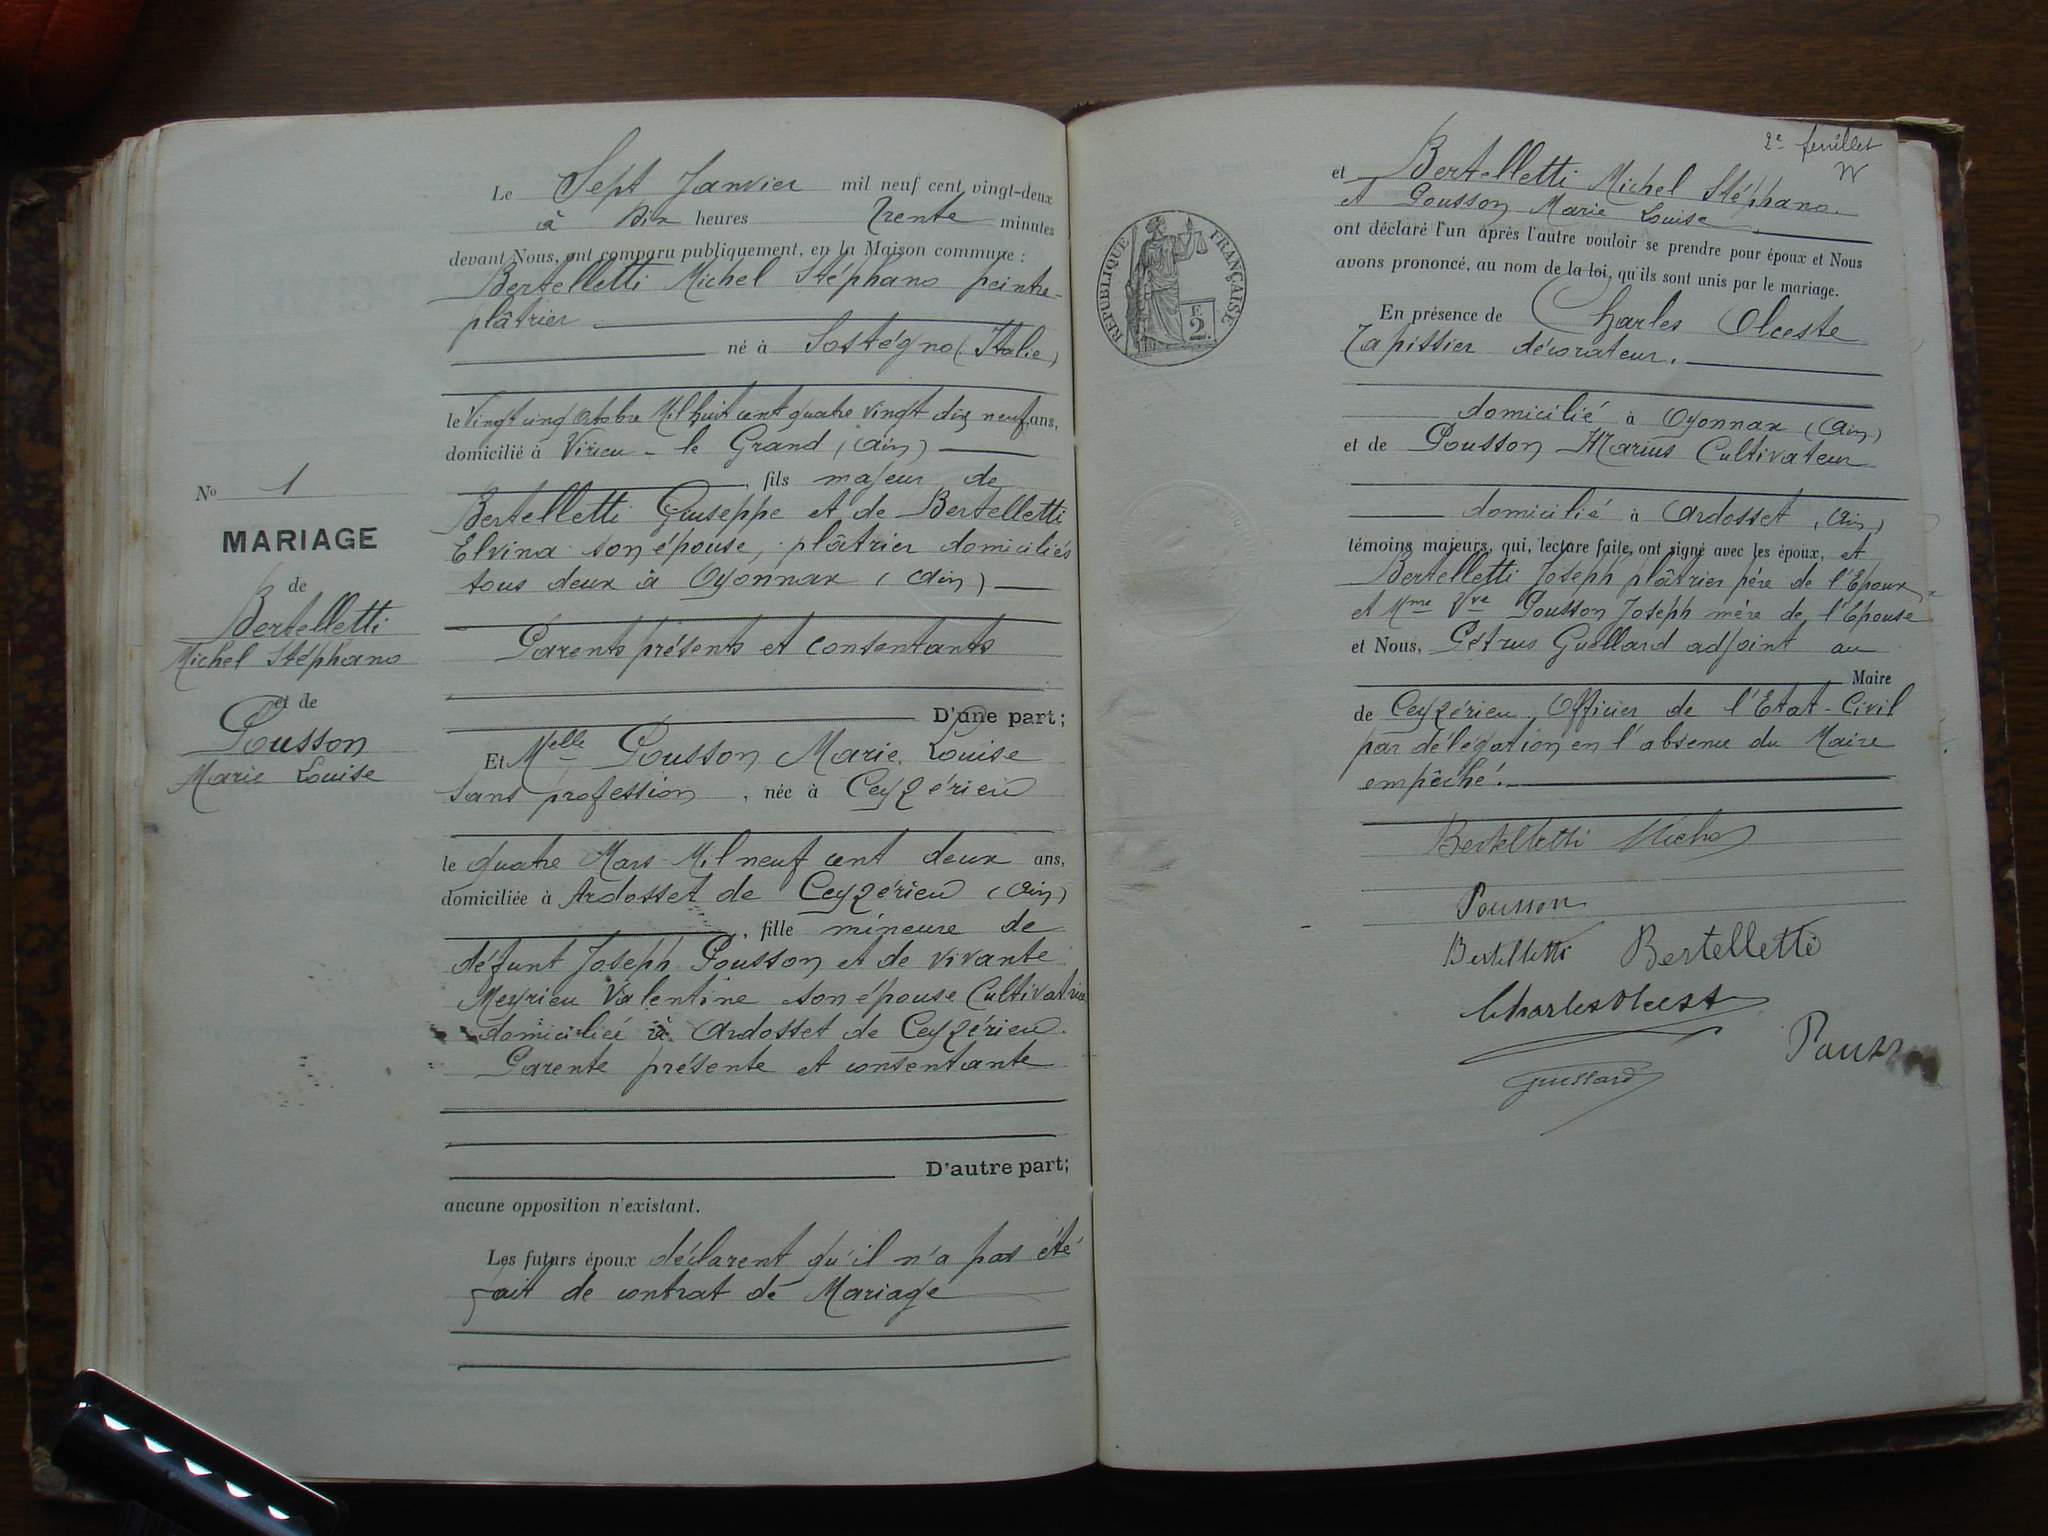 Le Sept Janvier mil neuf cent vingt-deux
à Dix heures Trente minutes
devant Nous, ont comparu publiquement, en la Maison commune :
Bertelletti Michel Stéphano peintre-
plâtrier
né à Sostégno (Italie)
le Vingt cinq Octobre Mil huit cent quatre vingt dix neuf ans,
domicilié à Virieu-le Grand (Ain)
, fils majeur de
Bertelletti Guiseppe et de Bertelletti
Elvina son épouse, plâtrier domiciliés
tous deux à Oyonnax (Ain)
Parents présents et consentants
D'une part;
Et Melle Pousson Marie Louise
Sans profession, née à Ceyzérieu
le quatre Mars Mil neuf cent deux ans,
domiciliée à Ardosset de Ceyzérieu (Ain)
, fille mineure de
défunt Joseph Pousson et de vivante
Meyrieu Valentine son épouse Cultivatrice
domiciliée à Ardosset de Ceyzérieu.
Parente présente et consentante
D'autre part;
aucune opposition n'existant.
Les futurs époux déclarent qu'il n'a pas été
fait de contrat de Mariage
No 1
MARIAGE
de
Bertelletti
Michel Stéphano
et de
Pousson
Marie Louise
2e feuillet
et Bertelletti Michel Stéphano.
et Pousson Marie Louise
ont déclaré l'un après l'autre vouloir se prendre pour époux et Nous
avons prononcé, au nom de la loi, qu'ils sont unis par le mariage.
En présence de Charles Olceste
Tapissier décorateur.
domicilié à Oyonnax (Ain)
et de Pousson Marius Cultivateur
domicilié à Ardosset (Ain)
témoins majeurs, qui, lecture faite, ont signé avec les époux, et
Bertelletti Joseph plâtrier père de l'Epoux
et Mme Vve Pousson Joseph mère de l'Epouse
et Nous, Pétrus Guillard adjoint au
Maire
de Ceyzérieu, Officier de l'Etat-Civil
par délégation en l'absence du Maire
empêché.
RÉPUBLIQUE FRANÇAISE
F.
2.
Bertelletti
Pousson
Bertelletti Bertelletti
Charles